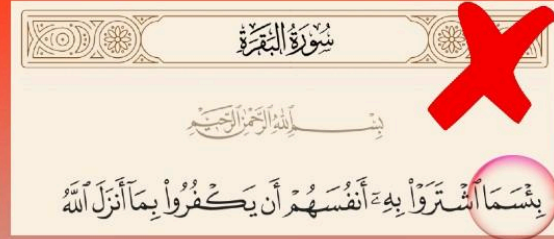 سُورَةُ الْبَقَرَةِ
بِسْمِ ٱللَّهِ ٱلرَّحْمَٰنِ ٱلرَّحِيمِ
بِئْسَمَا ٱشْتَرَوْا۟ بِهِۦٓ أَنفُسَهُمْ أَن يَكْفُرُوا۟ بِمَآ أَنزَلَ ٱللَّهُ